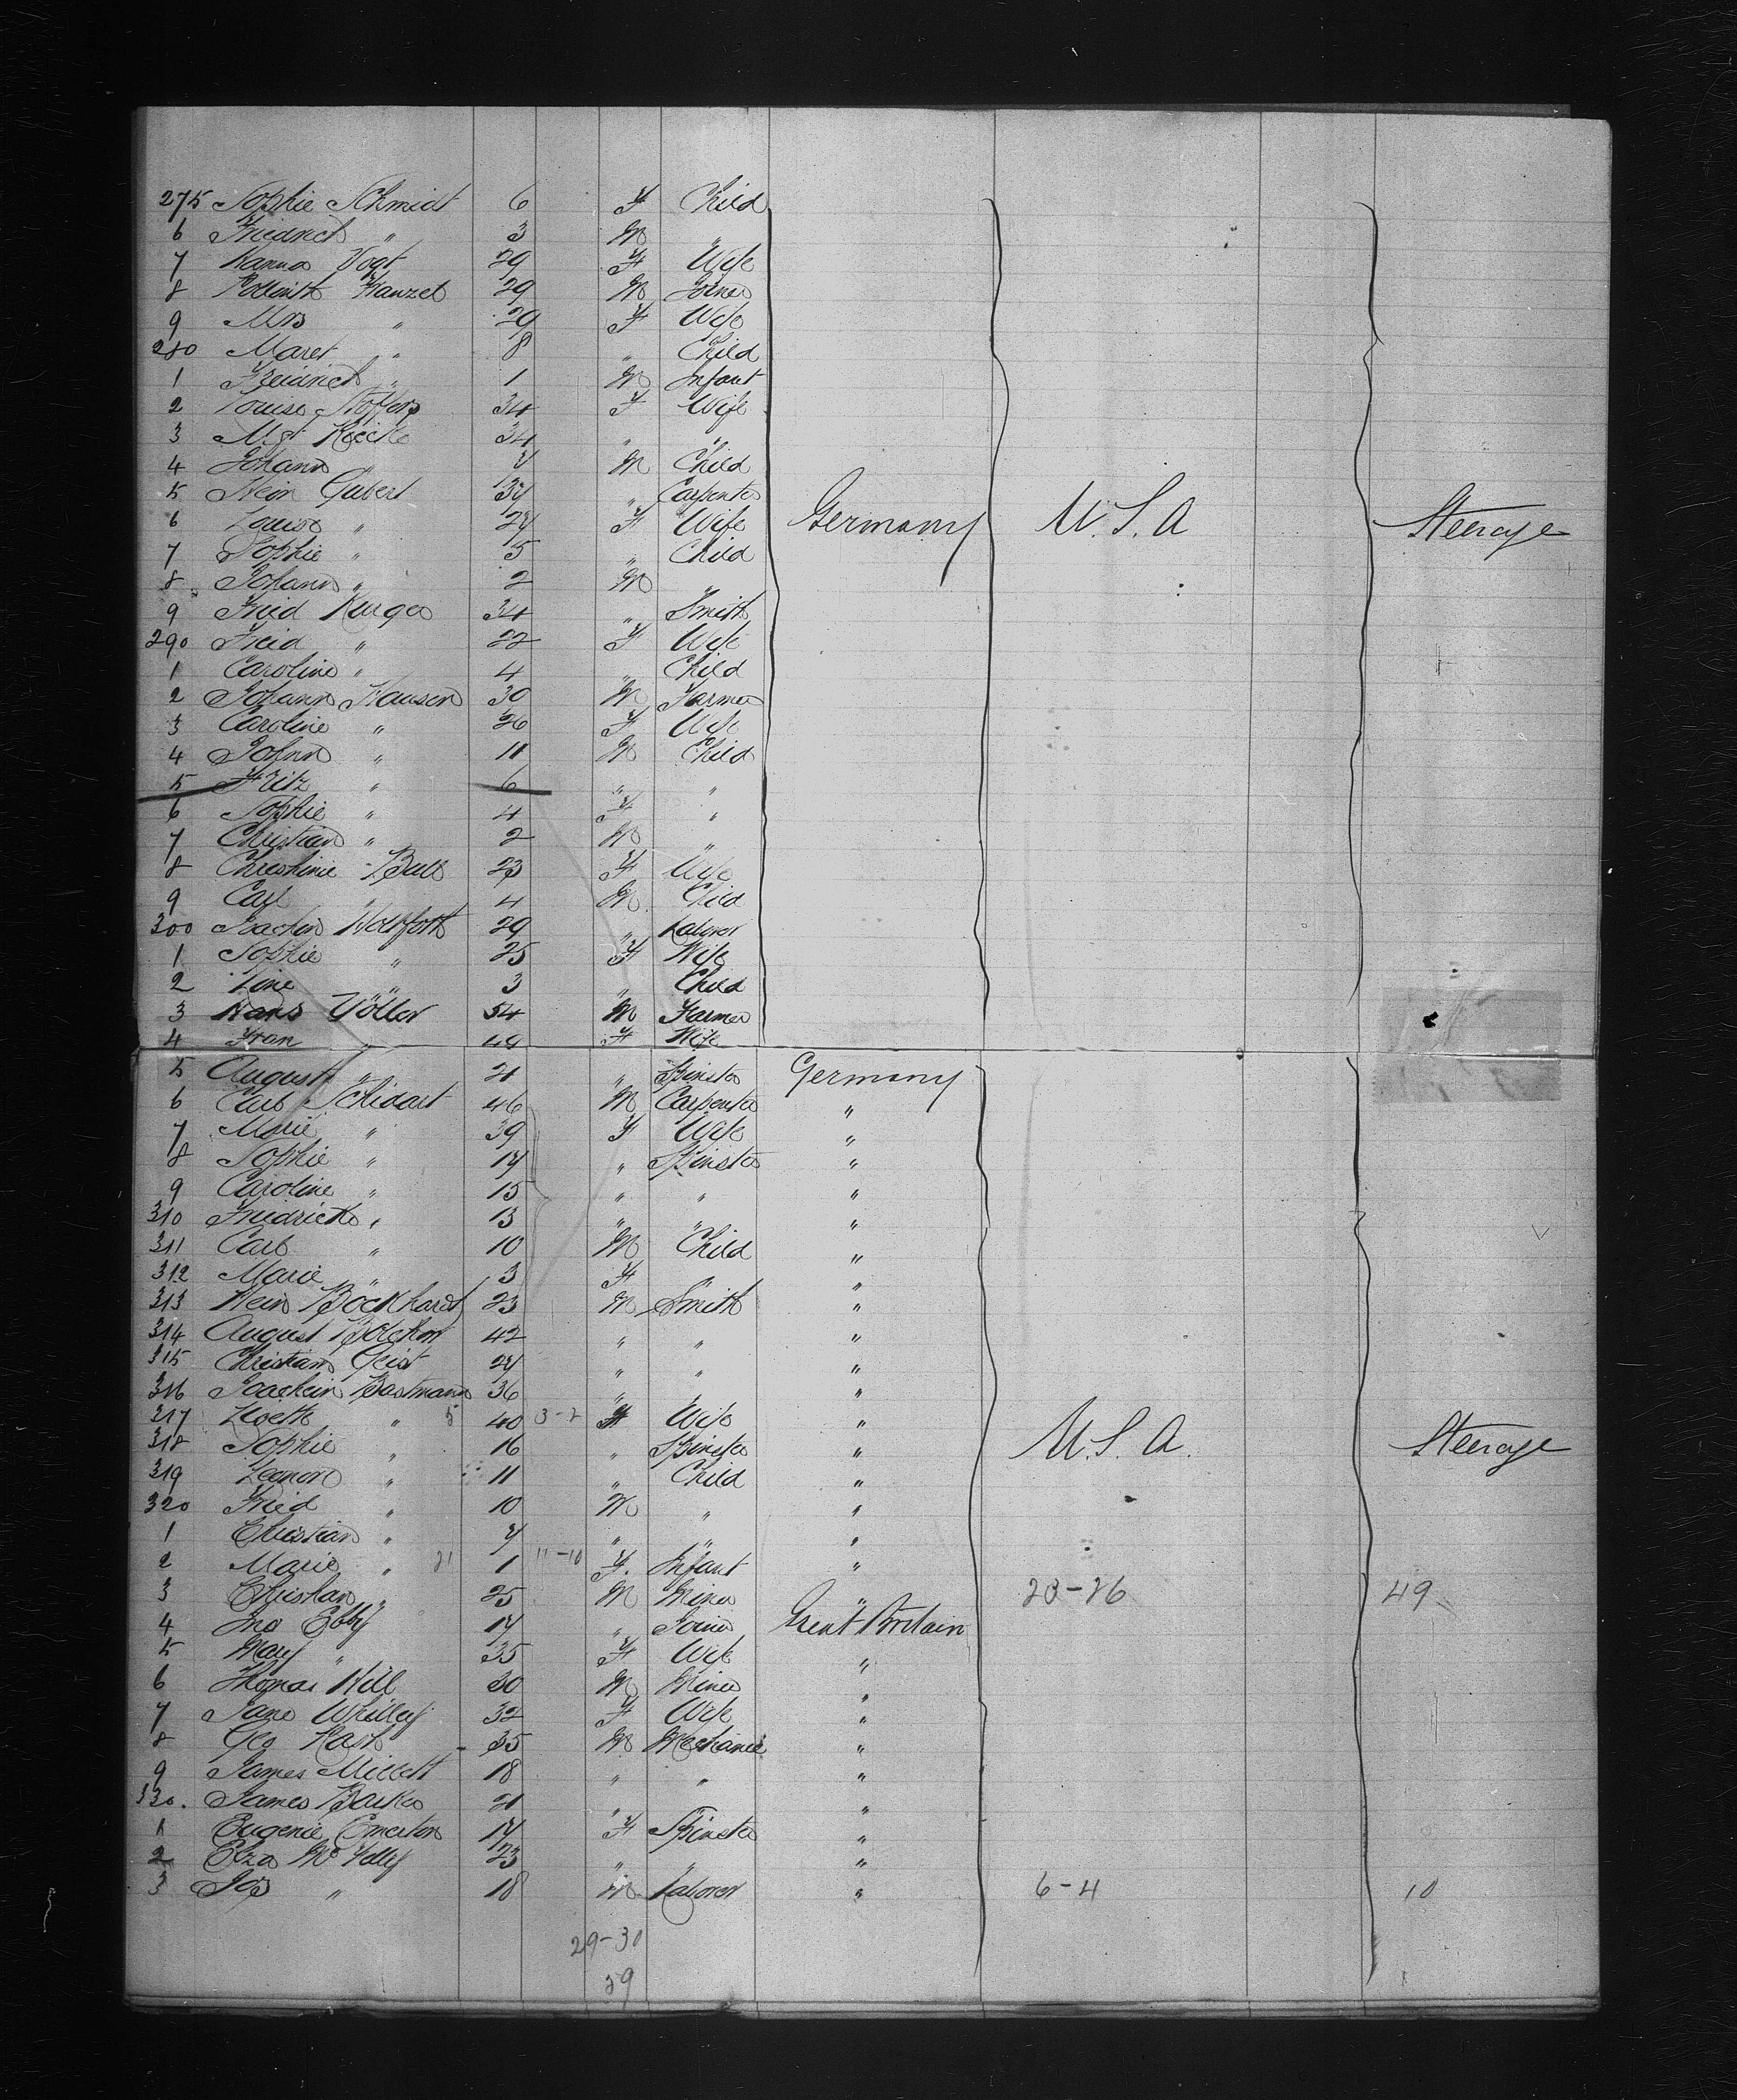 275 Sophie Schmidt 6 F Child
6 Friedrich " 3 M "
7 Hanna Vogt 29 F Wife
8 29 M Joiner
9 Mrs " 29 F Wife
280 Maret " 8 " Child
1 Freidrich " 1 M Infant
2 Louise Stoffers 34 F Wife
3 Mgt 34 " "
4 Johann " M Child
5 Hein Gubert 37 " Carpenter
6 Louise " 27 F Wife Germany U.S.A Steerage
7 Sophie " 5 " Child
8 Johann " 2 M "
9 Fried Kruger 34 " Smith
290 Fried " 22 F Wife
1 Caroline " 4 " Child
2 Johann Hansen 30 M Farmer
3 Caroline " 26 F Wife
4 Johann " 11 M Child
5 Fritz " 6 " "
6 Sophie " 4 F "
7 Christian " 2 M "
8 Christinie 23 F Wife
9 Carl " 4 M Child
300 Joachim 29 " Laborer
1 Sophie " 25 F Wife
2 Line " 3 " Child
3 Hans Völler 54 M Farmer
4 Fran 49 F Wife
5 August " 21 " Spinster Germany
6 Carl Schidart 46 M Carpenter "
7 Marie " 39 F Wife "
8 Sophie " 17 " Spinster "
9 Caroline " 15 " " "
310 Friedricke " 13 " " "
311 Carl " 10 M Child "
312 Marie " 3 F " "
313 Hein Bockhardt 23 M Smith "
314 August 42 " " "
315 Christian Geist 27 " " "
316 Joachein Bastmann 36 " "
317 " 5 40 3-2 F Wife "
318 Sophie " 16 " Spinster " U.S.A. Steerage
319 Leonore " 11 " Child "
320 Fried " 10 M " "
1 Christian " 7 " " "
2 Marie " 21 1 11-10 F. Infant "
3 Christian " 25 M Miner " 23-26 49
4 Jno Ebby 17 " Joiner Great Britain
5 Mary " 35 F Wife "
6 Thomas Hill 30 M Miner "
7 Jane Whilley 32 F Wife "
8 Geo 35 M Mechanic "
9 James Millett 18 " " "
330. James Barker 21 " " "
1 Eugenie Emerton 17 F Spinster "
2 Eliza 23 " " "
3 Jos " 18 M Laborer " 6-4 10
29-30
59